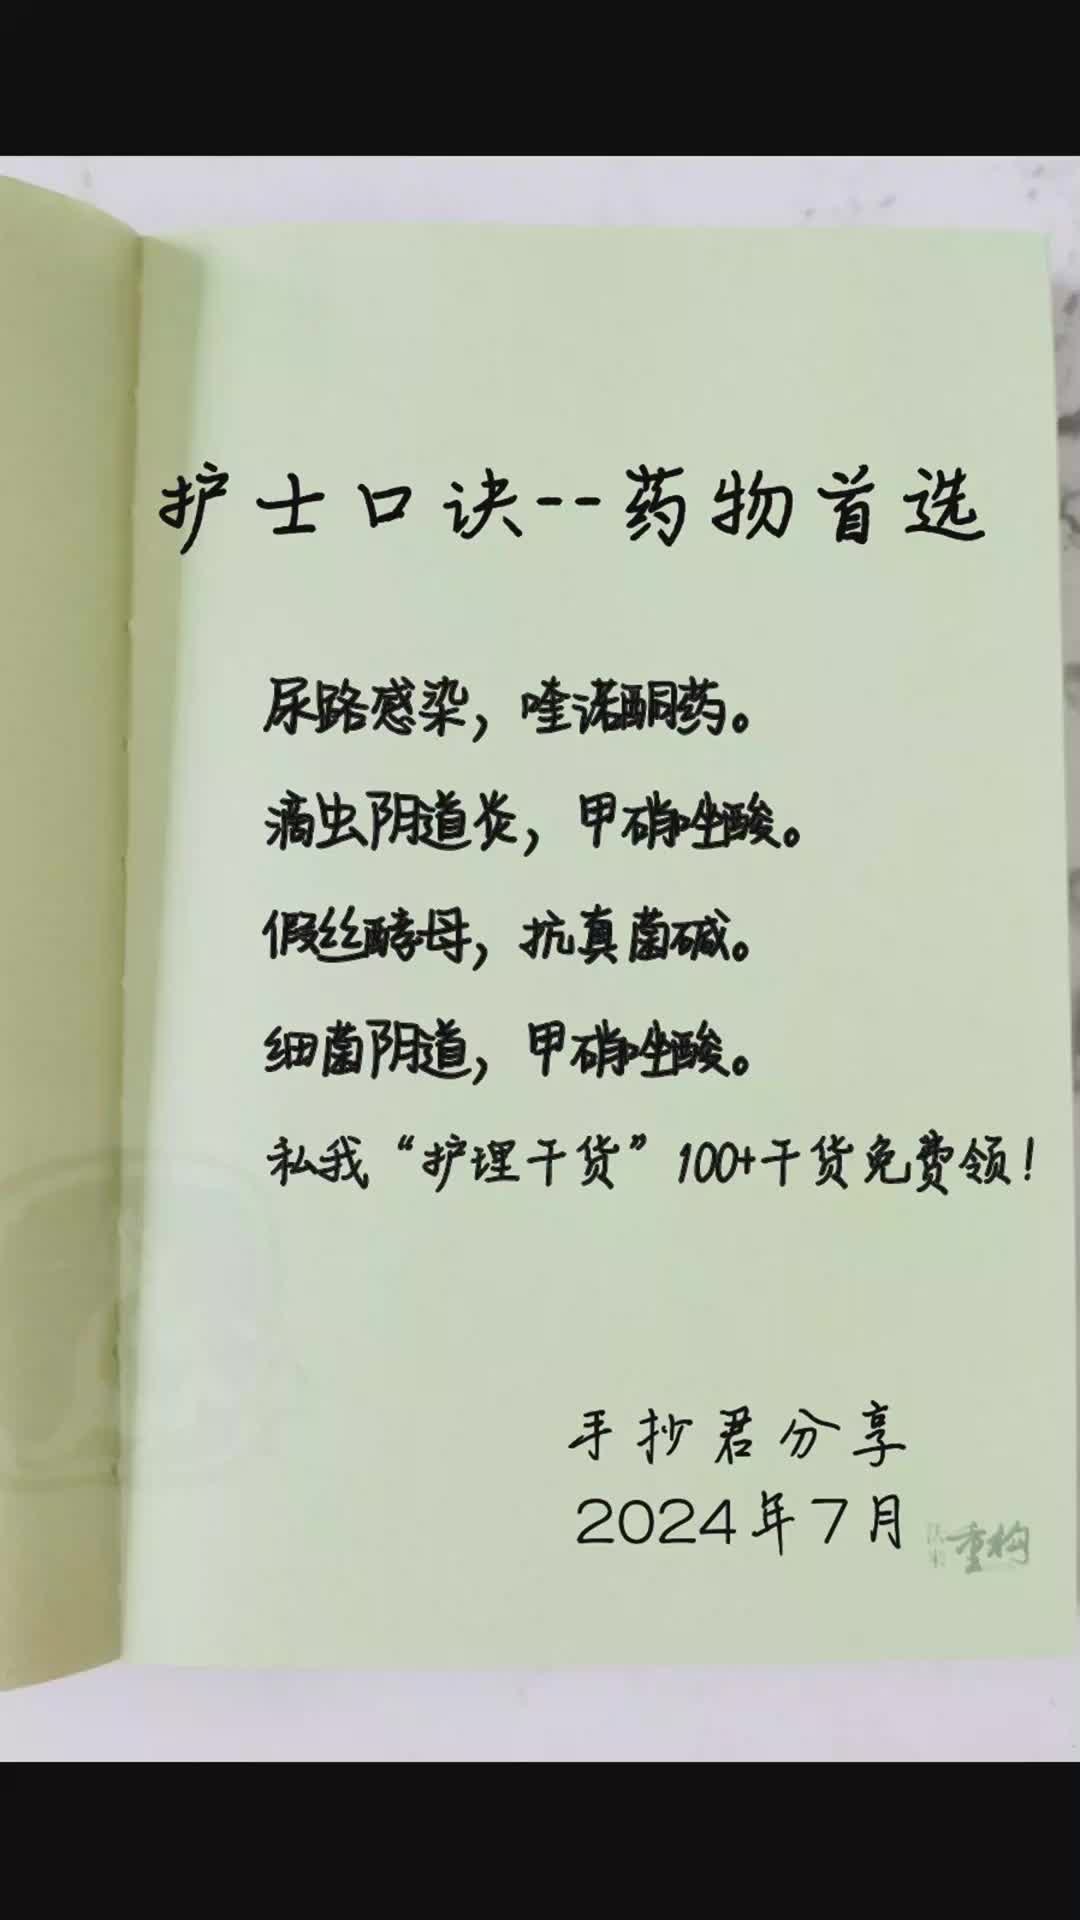 护士口诀--药物首选
尿路感染，喹诺酮药。
滴虫阴道炎，甲硝唑酸。
假丝酵母，抗真菌碱。
细菌阴道，甲硝唑酸。
私我“护理干货”100+干货免费领！
手抄君分享
2024年7月
重构